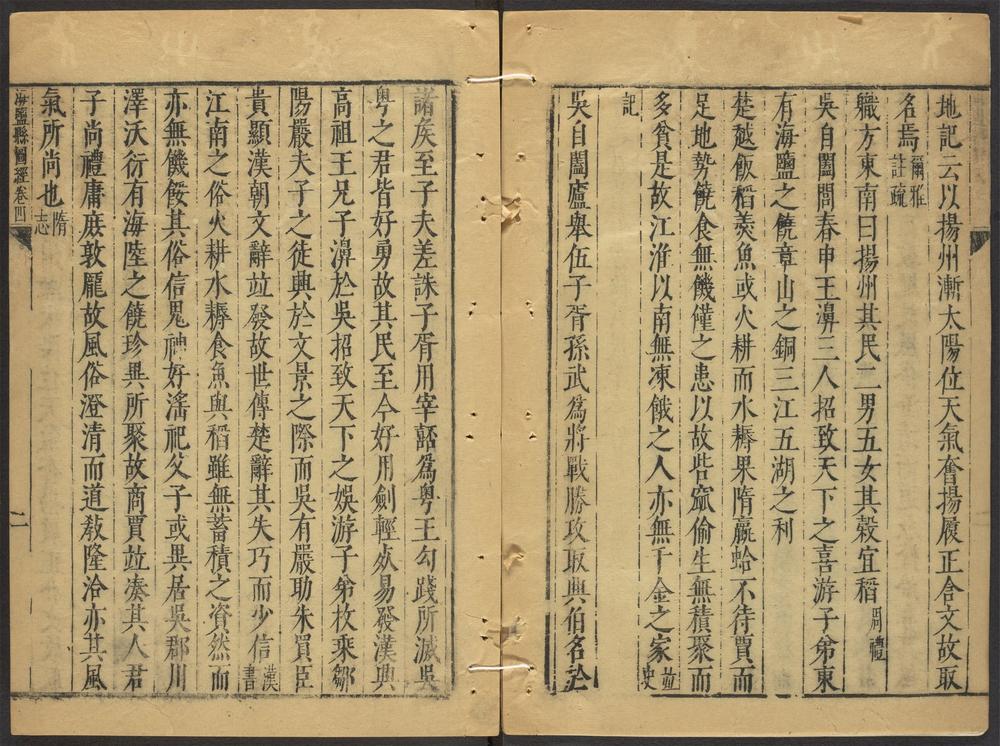 地記云以揚州漸太陽位天氣奮揚履正含文故取
名焉爾雅註疏
職方東南曰揚州其民二男五女其穀宜稻周禮
吳自闔閭春申王濞三人招致天下之喜游子弟東
有海鹽之饒章山之銅三江五湖之利
楚越飯稻羮魚或火耕而水耨果隋蠃蛤不待賈而
足地勢饒食無饑饉之患以故呰窳偷生無積聚而
多貧是故江淮以南無凍餓之人亦無千金之家竝史
記
吳自闔廬舉伍子胥孫武爲將戰勝攻取興伯名於
諸矦至子夫差誅子胥用宰嚭爲粤王勾踐所滅吳
粤之君皆好勇故其民至今好用劍輕㱾易發漢興
高祖王兄子濞於吳招致天下之娛游子弟枚乘鄒
陽嚴夫子之徒興於文景之際而吳有嚴助朱買臣
貴顯漢朝文辭竝發故世傳楚辭其失巧而少信漢書
江南之俗火耕水耨食魚與稻雖無蓄積之資然而
亦無饑餒其俗信鬼神好淫祀父子或異居吳郡川
澤沃衍有海陸之饒珍異所聚故商賈竝湊其人君
子尚禮庸庶敦龎故風俗澄清而道敎隆洽亦其風
氣所尚也隋志
海鹽縣圖經卷四
二